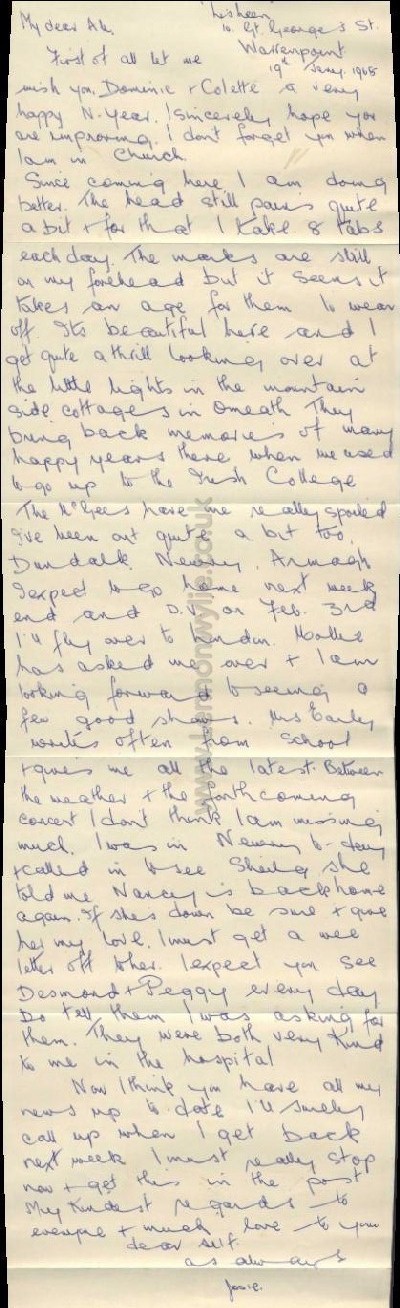 Lisheen
10. Gt. George's St.
Warrenpoint
19th Jany. 1965
My dear
First of all let me
wish you, Dominic + Colette a very
happy N. Year. I sincerely hope you
are improving. I don't forget you when
I am in Church.
Since coming here I am doing
better. The head still pains quite
a bit + for that I take 8 tabs
each day. The marks are still
on my forehead but it seems it
takes an age for them to wear
off. Its beautiful here and I
get quite a thrill looking over at
the little lights in the mountain
side cottages in Omeath They
bring back memories of many
happy years there when we used
to go up to the Irish College
The McGees have me really spoiled
I've been out quite a bit too,
Dundalk, Newry, Armagh
I expect to go home next week
end and D.V. on Feb. 3rd
I'll fly over to London.
has asked me over + I am
looking forward to seeing a
few good shows. Mrs Early
writes often from School
+ gives me all the latest. Between
the weather + the forthcoming
concert I don't think I am missing
much. I was in Newry to-day
+ called in to see Sheila she
told me Nancy is back home
again. If she's down be sure + give
her my love. I must get a wee
letter off to her. I expect you see
Desmond + Peggy every day
Do tell them I was asking for
them. They were both very kind
to me in the hospital
Now I think you have all my
news up to date I'll surely
call up when I get back
next week I must really stop
now + get this in the post
My Kindest regards to
everyone + much love to your
dear self.
as always
Josie.
www.lennonwylie.co.uk